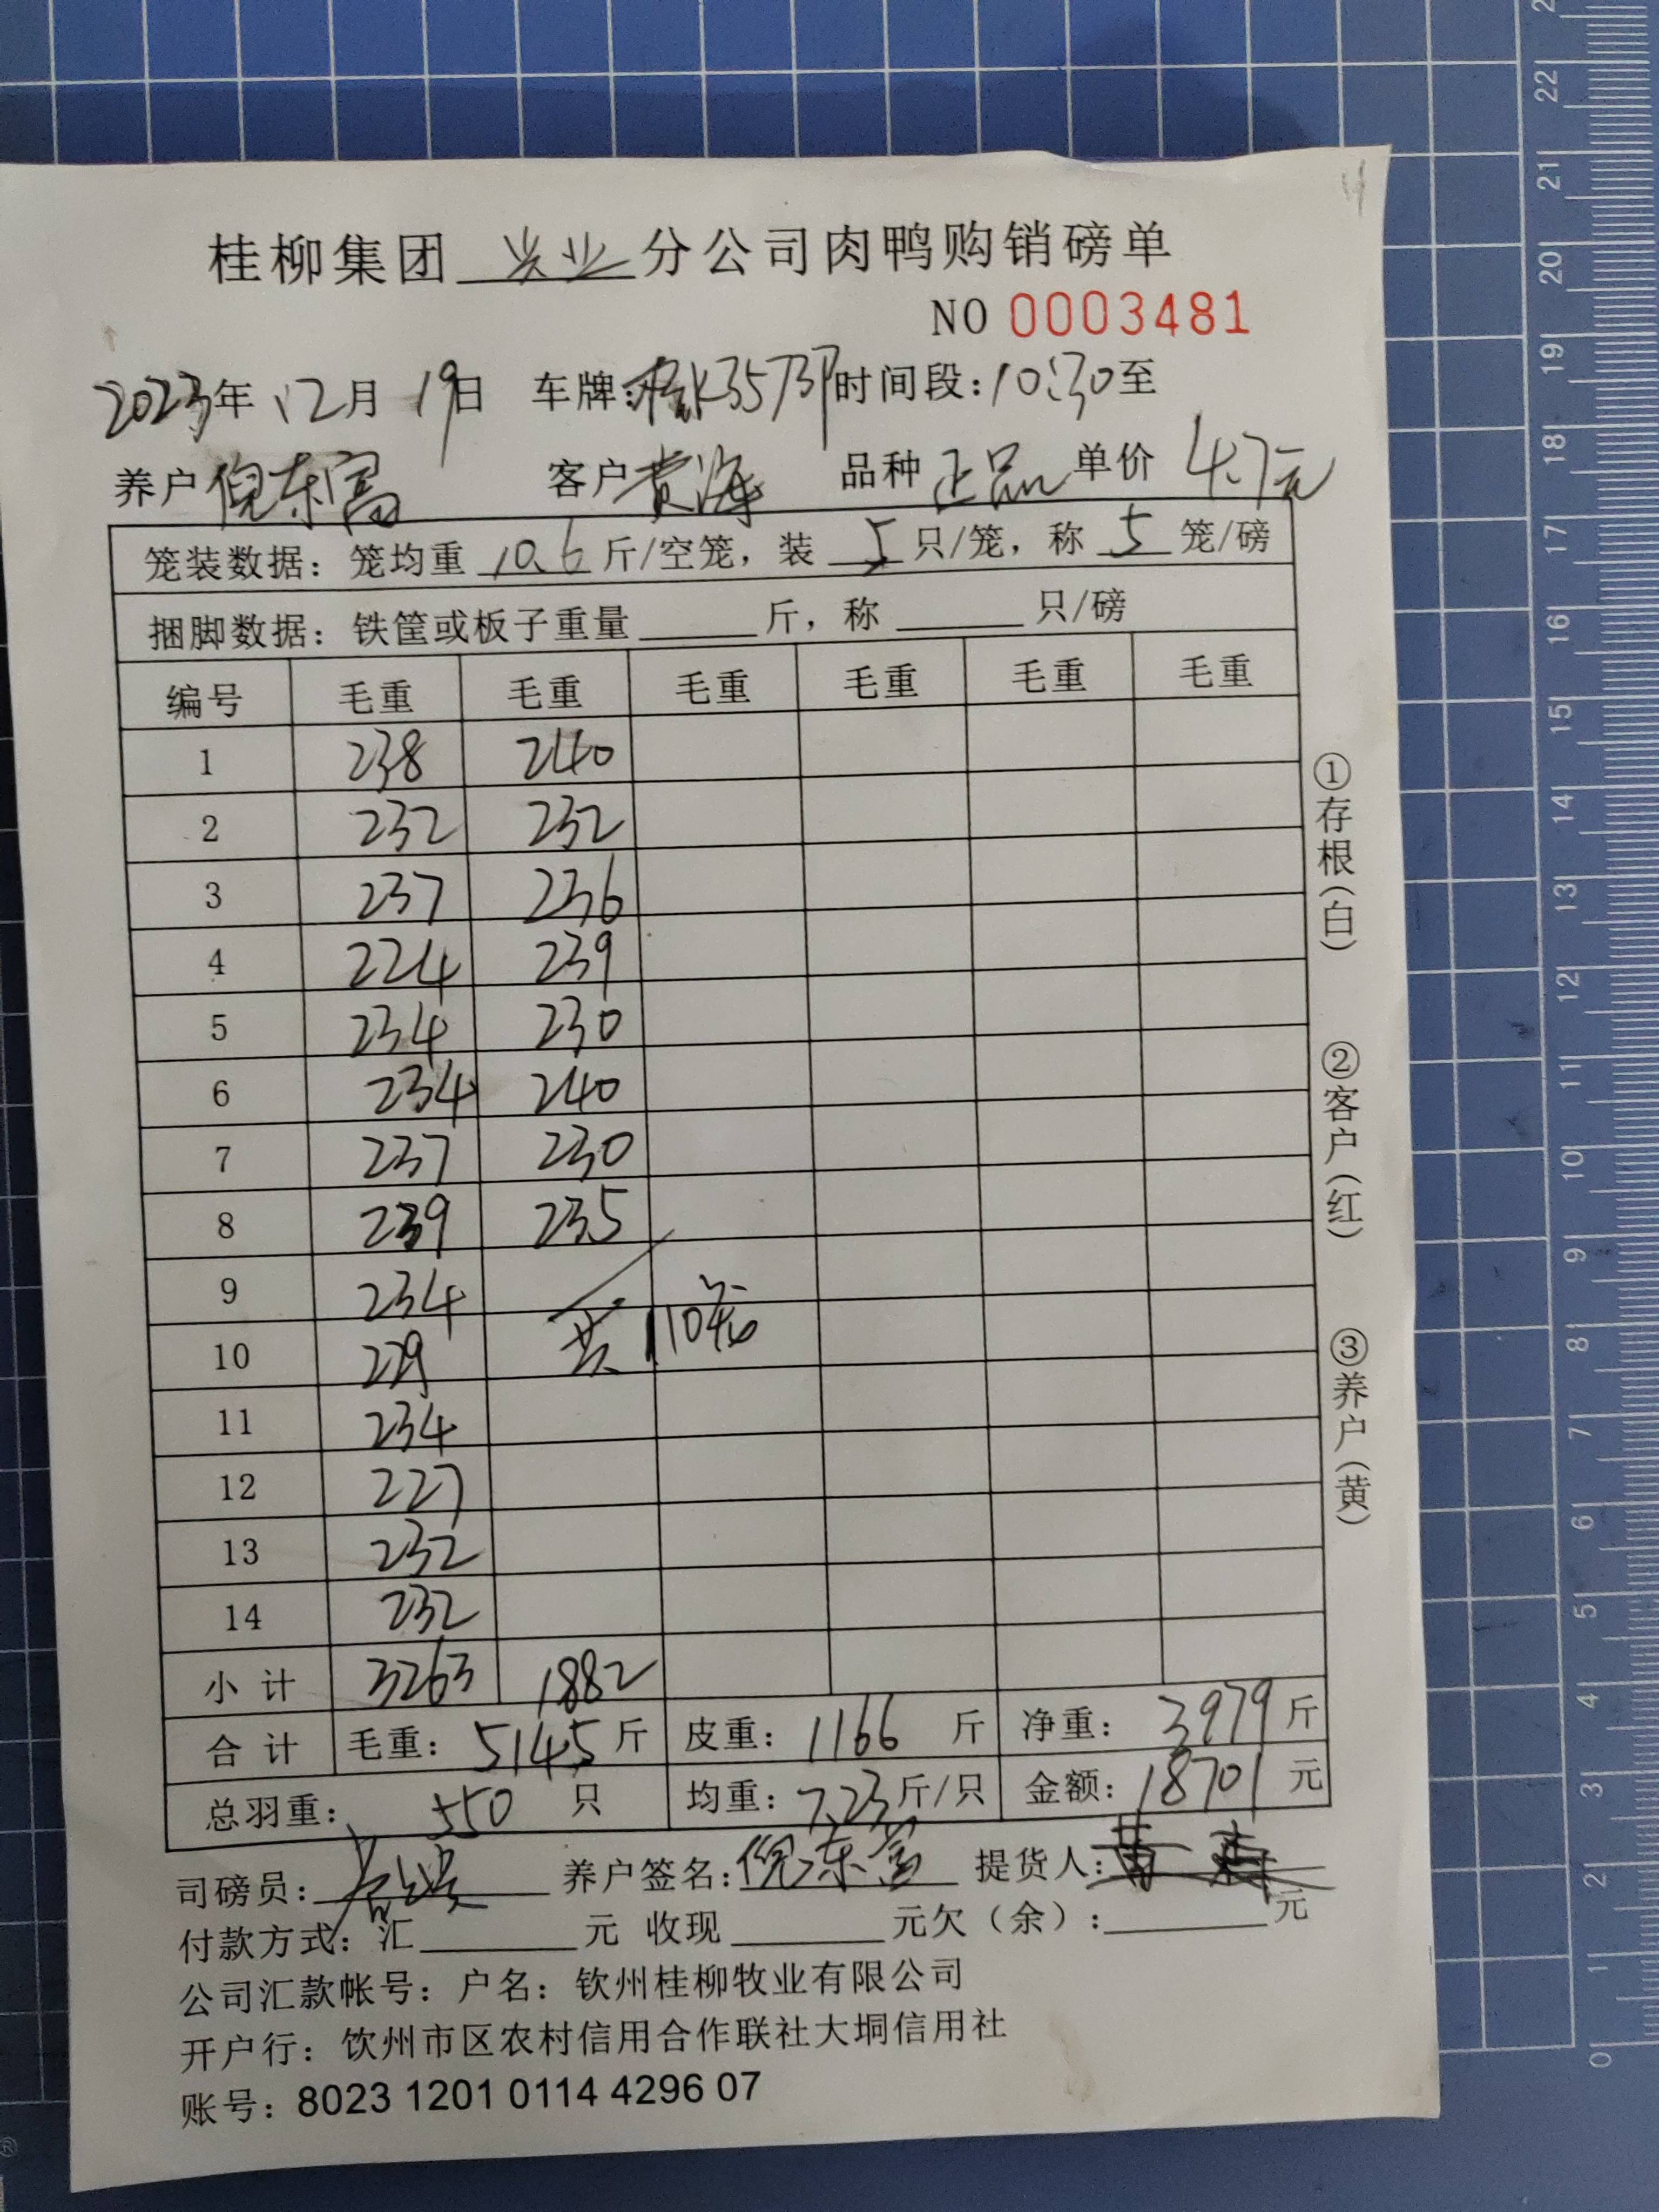 桂柳集团 兴业 分公司肉鸭购销磅单
NO 0003481
2023年 12月 19日 车牌: 时间段:10:30至
养户 倪东富 客户 黄海 品种 正品 单价 4.7元
笼装数据: 笼均重 10.6 斤/空笼, 装 5 只/笼, 称 5 笼/磅
捆脚数据: 铁筐或板子重量 斤, 称 只/磅
编号 毛重 毛重 毛重 毛重 毛重 毛重
1 238 240
2 232 232
3 237 236
4 224 239
5 234 230
6 234 240
7 237 230
8 239 235
9 234
10 229 共110笼
11 234
12 227
13 232
14 232
小 计 3263 1882
合 计 毛重: 5145 斤 皮重: 1166 斤 净重: 3979 斤
总羽重: 550 只 均重: 7.23 斤/只 金额: 18701 元
司磅员: 养户签名: 倪东富 提货人:
付款方式: 汇 元 收现 元欠（余）: 元
公司汇款帐号: 户名: 钦州桂柳牧业有限公司
开户行: 饮州市区农村信用合作联社大垌信用社
账号: 8023 1201 0114 4296 07
①存根(白)
②客户(红)
③养户(黄)
22
21
20
19
18
17
16
15
14
13
12
11
10
9
8
7
6
5
4
3
2
1
0